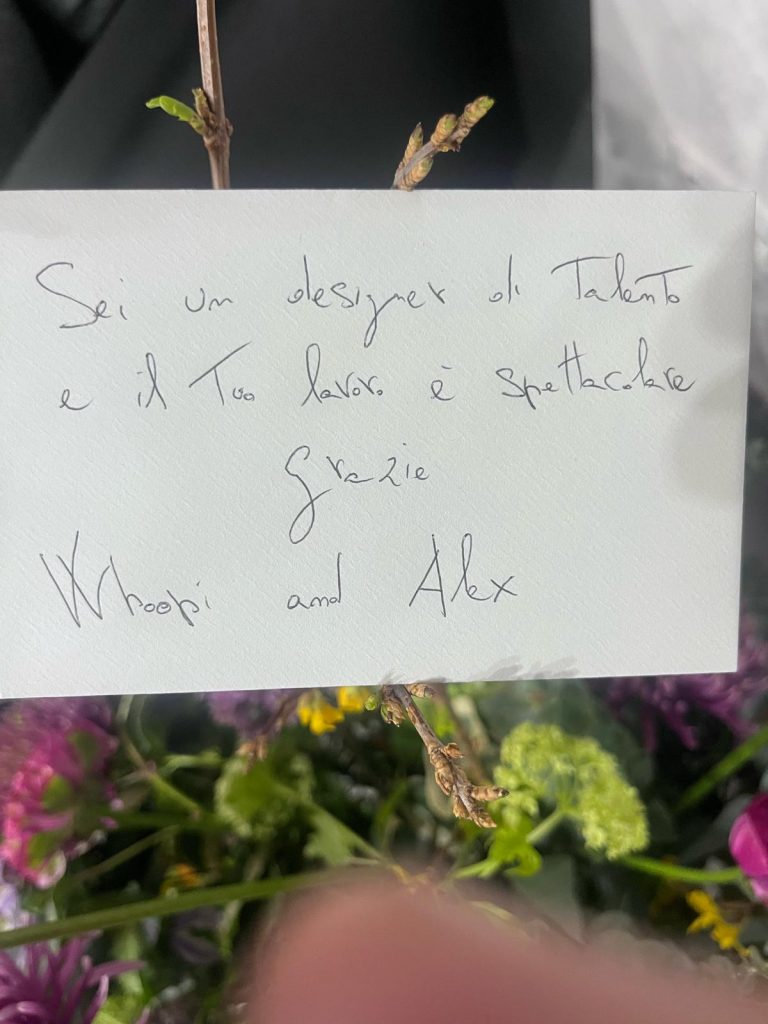 Sei un designer di Talento
e il Tuo lavoro è spettacolare
grazie
Whoopi and Alex